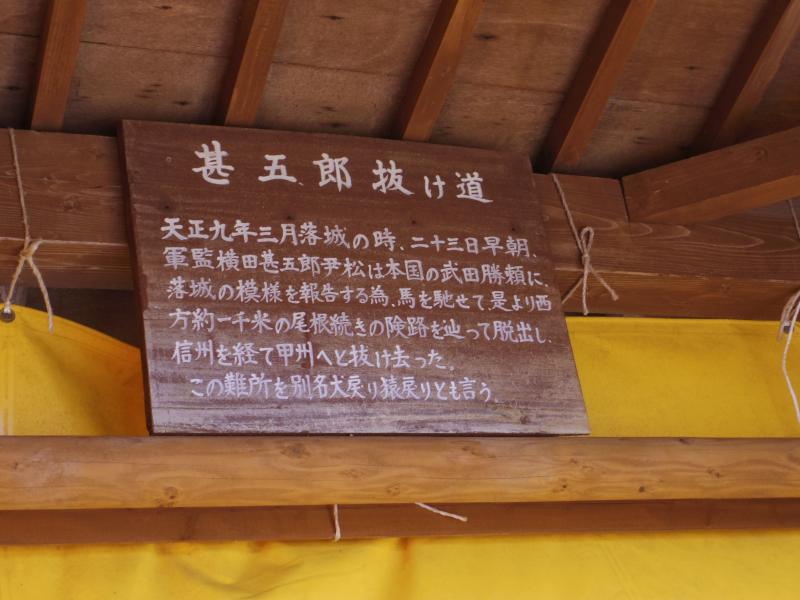 甚五郎抜け道
天正九年三月落城の時、二十三日早朝、
軍監横田甚五郎尹松は本国の武田勝頼に、
落城の模様を報告する為、馬を馳せて、是より西
方約一千米の尾根続きの険路を辿って脱出し、
信州を経て甲州へと抜け去った。
この難所を別名犬戻り猿戻りとも言う。